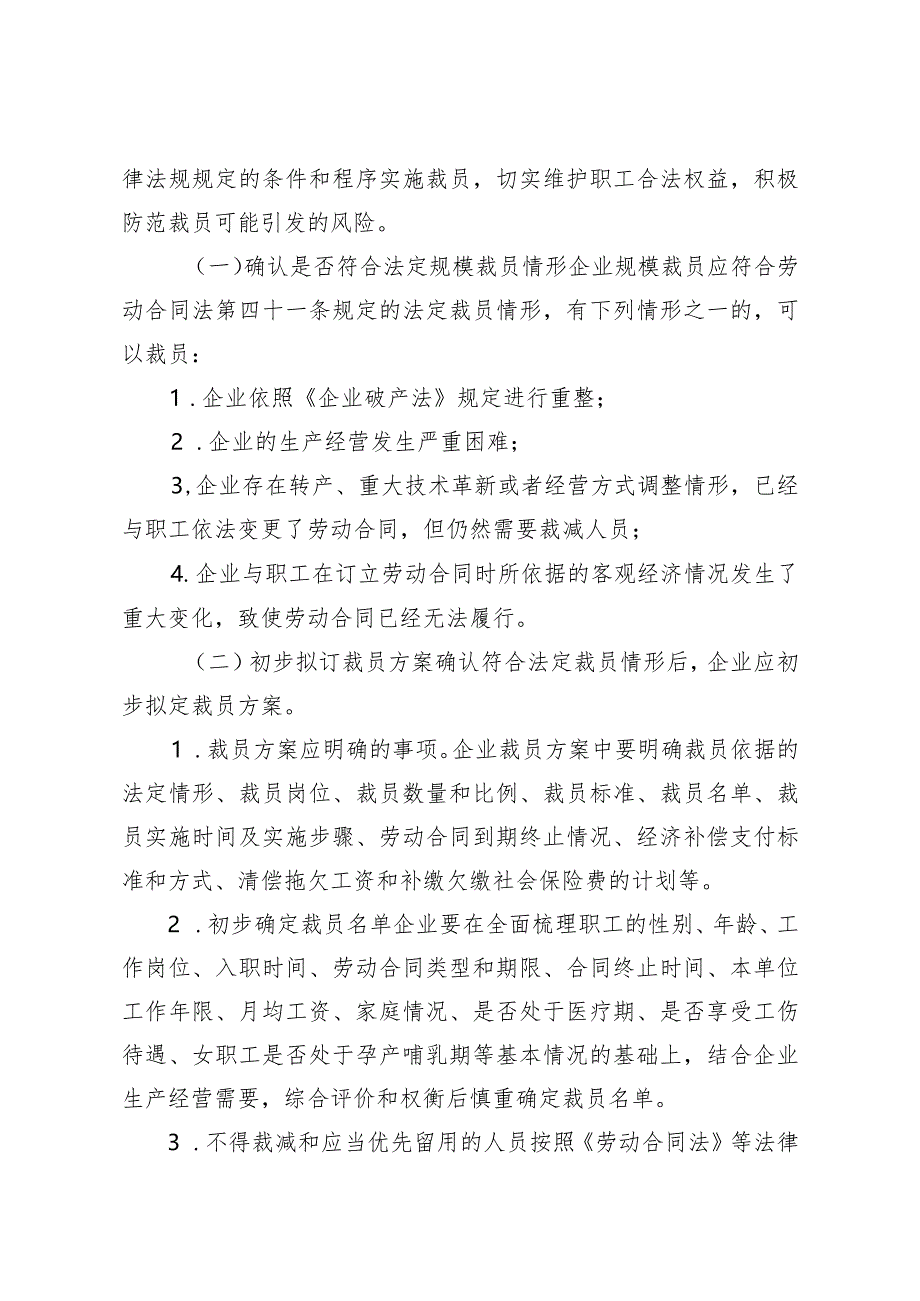 律法规规定的条件和程序实施裁员，切实维护职工合法权益，积极
防范裁员可能引发的风险。
（一）确认是否符合法定规模裁员情形企业规模裁员应符合劳
动合同法第四十一条规定的法定裁员情形，有下列情形之一的，可
以裁员：
1 .企业依照《企业破产法》规定进行重整；
2 .企业的生产经营发生严重困难；
3,企业存在转产、重大技术革新或者经营方式调整情形，已经
与职工依法变更了劳动合同，但仍然需要裁减人员；
4. 企业与职工在订立劳动合同时所依据的客观经济情况发生了
重大变化，致使劳动合同已经无法履行。
（二）初步拟订裁员方案确认符合法定裁员情形后，企业应初
步拟定裁员方案。
1 .裁员方案应明确的事项。企业裁员方案中要明确裁员依据的
法定情形、裁员岗位、裁员数量和比例、裁员标准、裁员名单、裁
员实施时间及实施步骤、劳动合同到期终止情况、经济补偿支付标
准和方式、清偿拖欠工资和补缴欠缴社会保险费的计划等。
2 .初步确定裁员名单企业要在全面梳理职工的性别、年龄、工
作岗位、入职时间、劳动合同类型和期限、合同终止时间、本单位
工作年限、月均工资、家庭情况、是否处于医疗期、是否享受工伤
待遇、女职工是否处于孕产哺乳期等基本情况的基础上，结合企业
生产经营需要，综合评价和权衡后慎重确定裁员名单。
3 .不得裁减和应当优先留用的人员按照《劳动合同法》等法律